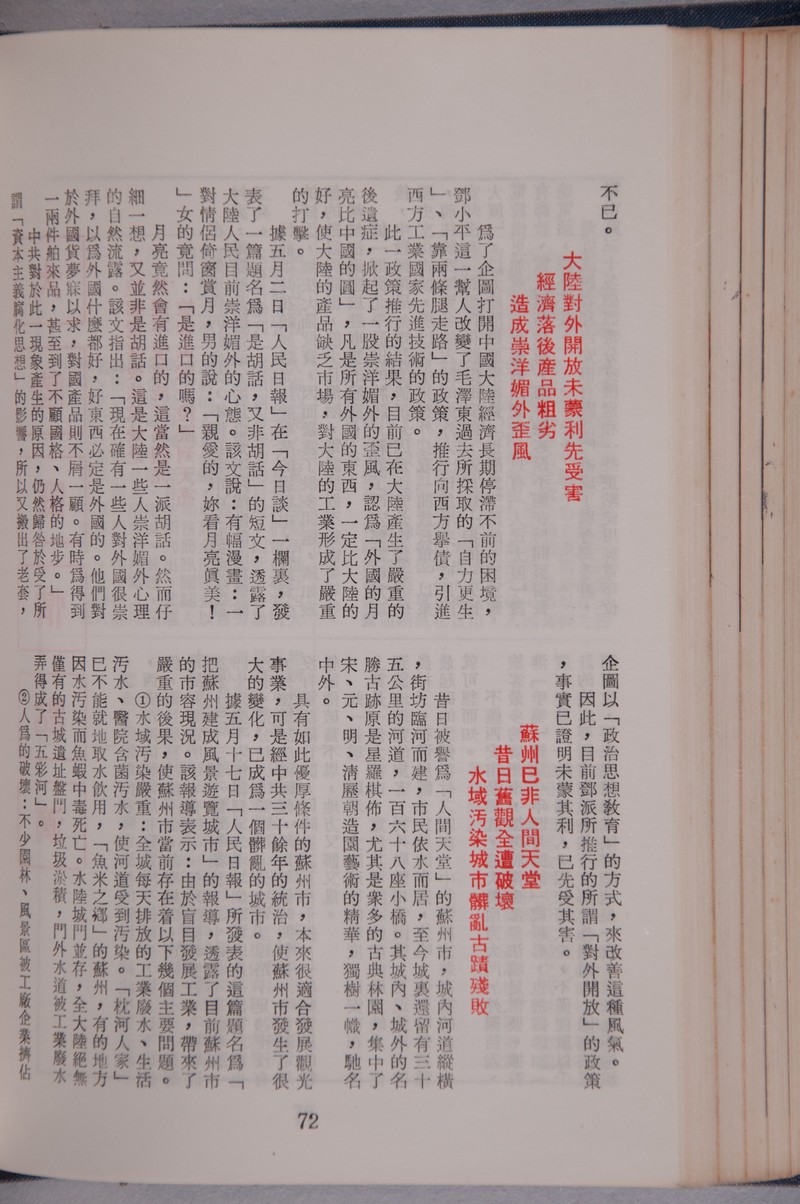 不已。
大陸對外開放未蒙利先受害
經濟落後產品粗劣
造成崇洋媚外歪風
爲了企圖打開中國大陸經濟長期停滯不前的困境，
鄧小平這一幫人改變了毛澤東過去所採取的「自力更生
」、「靠兩條腿走路」的政策，推行向西方舉債，引進
西方工業國家先進技術的政策。
此一政策推行的結果，目前已在大陸產生了嚴重的
後遺症，掀起了一股崇洋媚外的歪風，認爲「外國的月
亮比中國的圓」，凡是所有外國的東西，一定比大陸的
好，使大陸的產品缺乏市場，對大陸的工業形成了嚴重
的打擊。
據五月二日「人民日報」在「今日談」一欄裏，發
表了一篇題名爲「是胡話，又非胡話」的短文，透露了
大陸人民目前崇洋媚外的心態。該文說：有幅漫畫：一
對情侶倚窗賞月，男的說：「親愛的，妳看月亮眞美！
」女的竟問：「是進口的嗎？」
月亮竟然會有進口的，這當然是一派胡話。然而仔
細一想，又並非是胡話。這是大陸一些人崇洋媚外心理
的自然流露。該文指出：「現在確有一些人對外國很崇
拜，以爲外國什麼都好，好東西必定是外國的。他們對
於外國貨夢寐以求，對國產品則不屑一顧。有時爲得到
一兩件舶來品，甚至到了不顧國格、人格的地步。」
中共對於此一現象產生的原因，仍然歸咎於受了所
謂「資本主義腐化思想」的影響，所以又搬出了老套，
企圖以「政治思想教育」的方式，來改善這種風氣。
因此，目前鄧派所推行的所謂「對外開放」的政策
，事實已證明未蒙其利，已先受其害。
蘇州已非人間天堂
昔日舊觀全遭破壞
水域汚染城市髒亂古蹟殘敗
昔日被譽爲「人間天堂」的蘇州市，城內河道縱橫
，街坊臨河而建，市民依水而居，至今城裏還留有三十
五公里的河道，一百六十八座小橋。其城內、城外的名
勝古跡原是星羅棋佈，尤其是衆多的古典林園，集中了
宋、元、明、淸歷朝造園藝術的精華，獨樹一幟，馳名
中外。
具有如此優厚條件的蘇州市，本來很適合發展觀光
事業，可是經中共三十餘年的統治，使蘇州市發生了很
大的變化，已成爲一個髒亂的城市。
據五月十七日「人民日報」所發表的這篇題名爲「
把蘇州建成風景遊覽城市」的報導，透露了目前蘇州市
的市容現況。該報導表示：由於盲目發展工業，帶來了
嚴重的後果，使蘇州市當前存在着以下幾個主要問題。
①水域汚染嚴重：全城每天排放的工業廢水、生活
汚水、醫院含菌汚水，使河道受到汚染。「枕河人家」
已不能就地取水飲用，「魚米之鄉」的蘇州，有的地方
因水汚染而魚蝦中毒死亡。水陸城門並存，全大陸絕無
僅有的古城遺址盤門，垃圾淤積，門外水道被工業廢水
弄得成了「五彩河」。
②人爲的破壞：不少園林、風景區被工廠企業擠佔
72